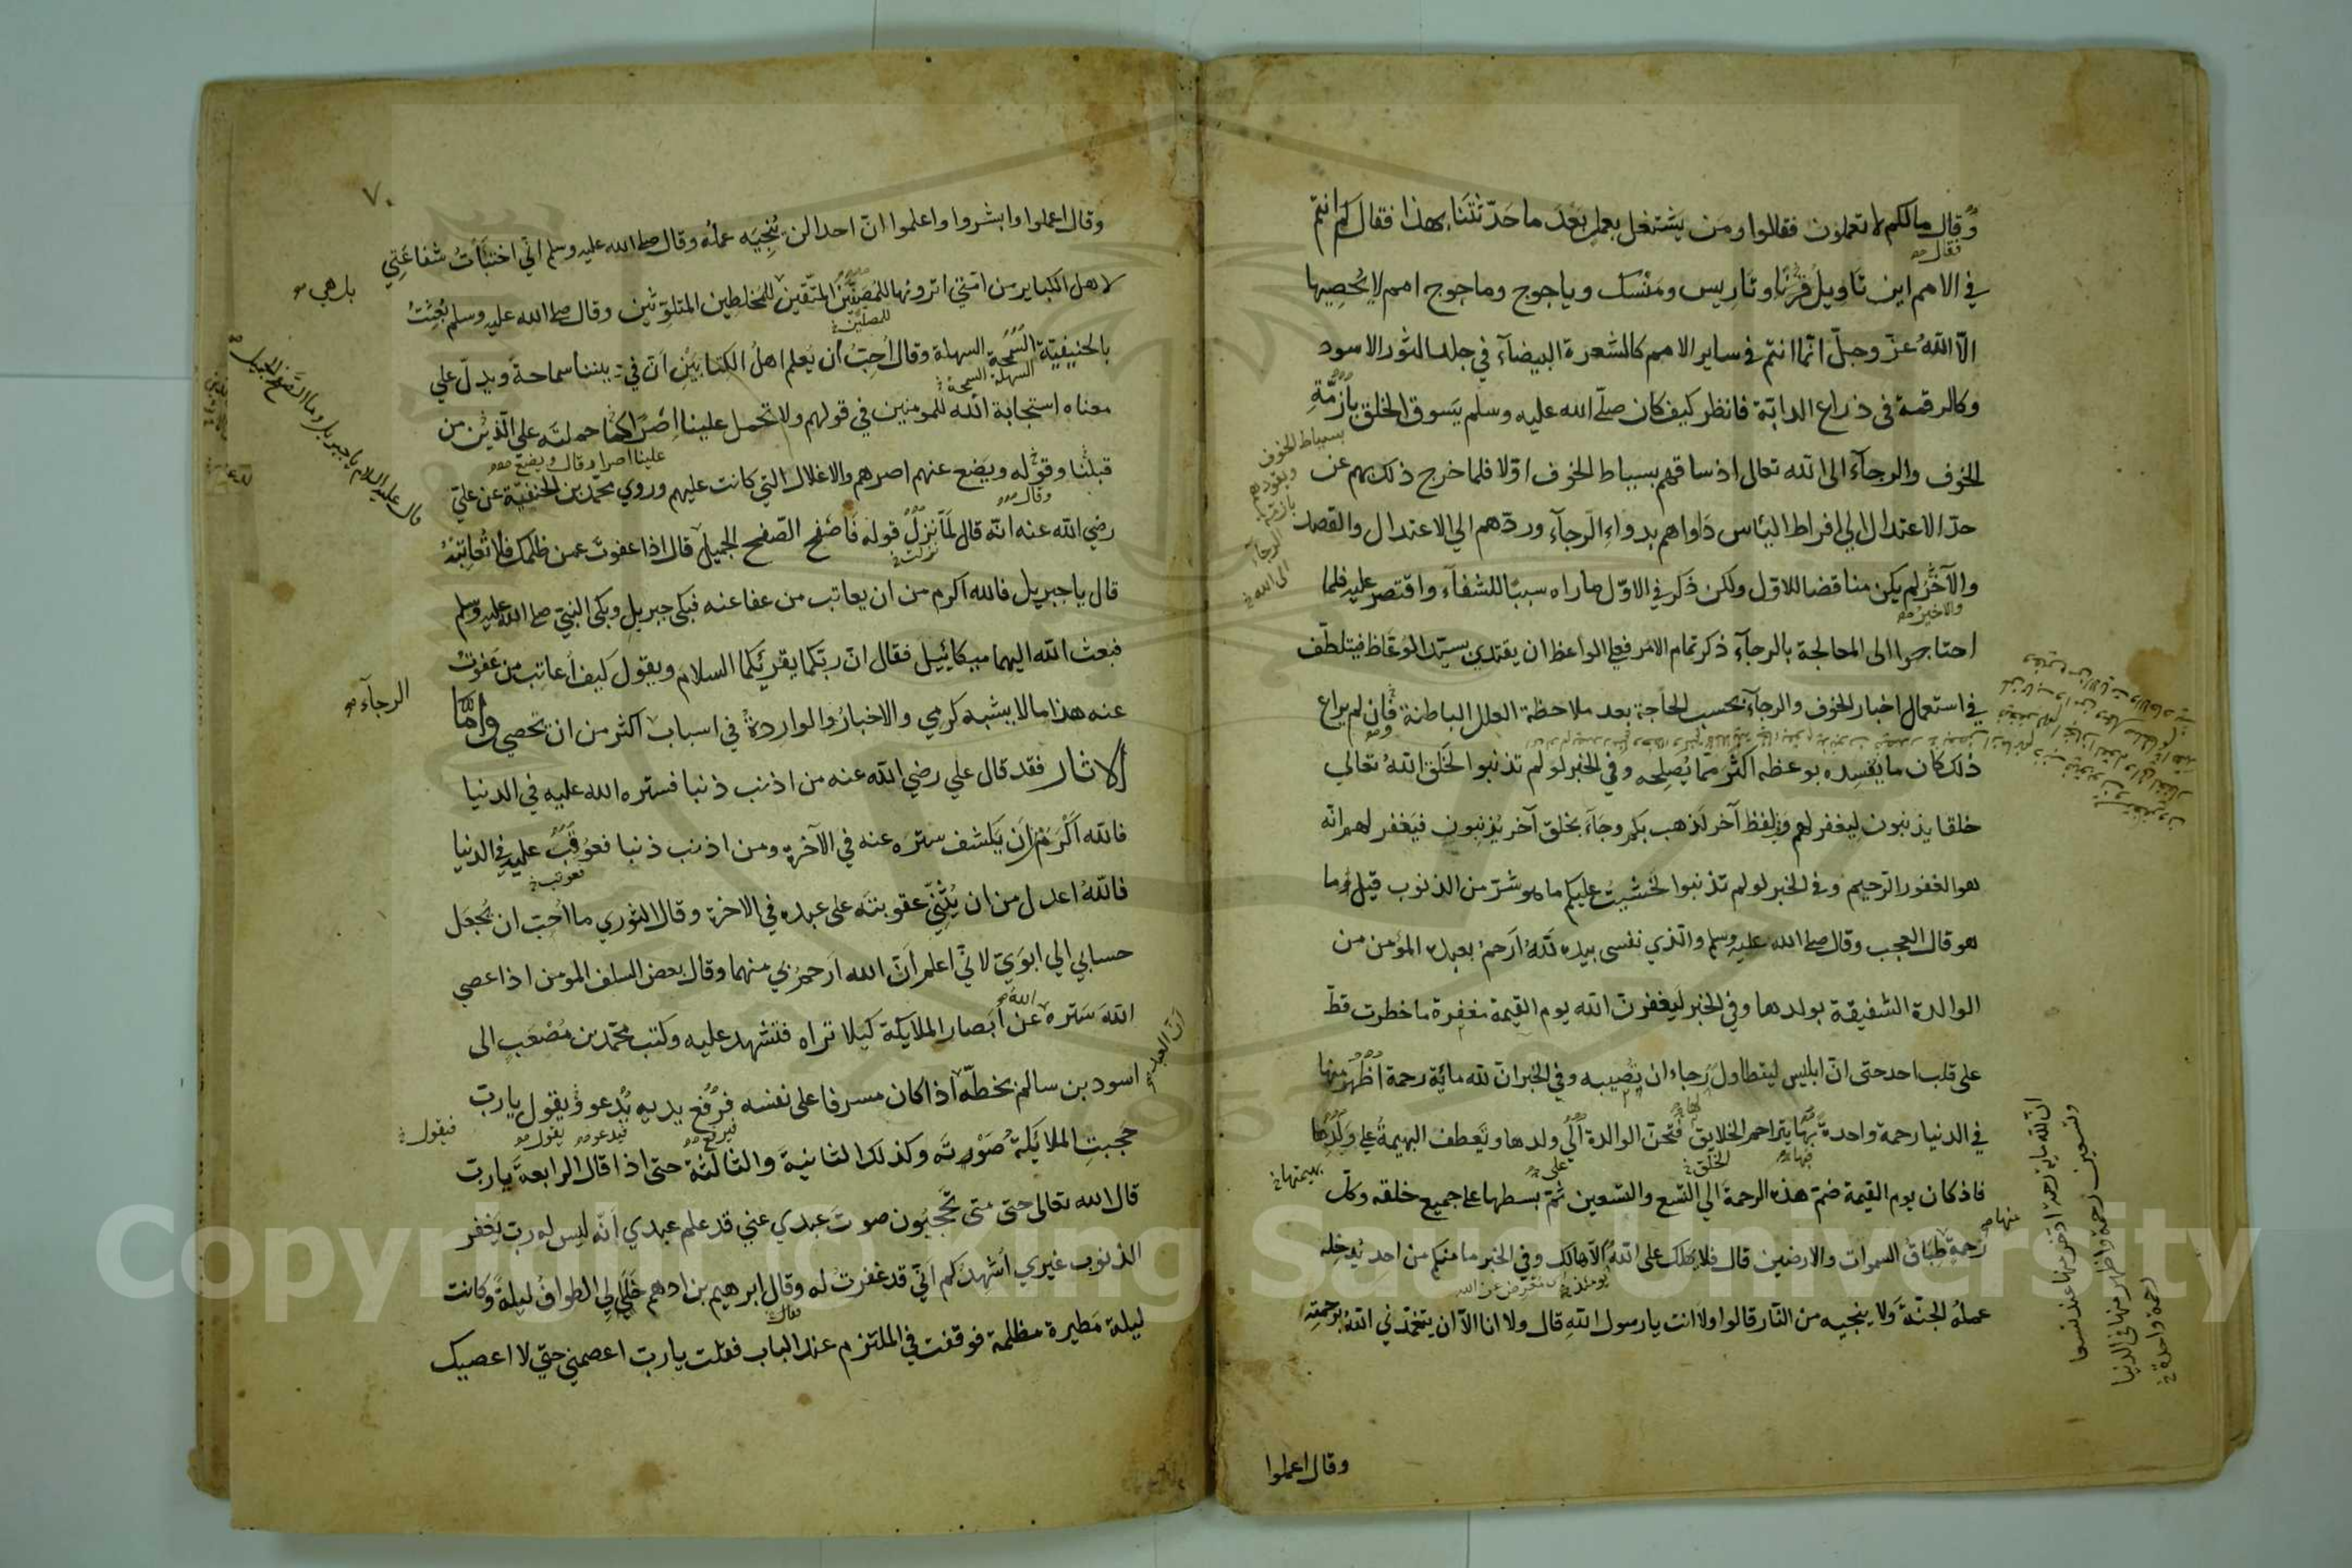 وقال مالكم لا تعملون فقالوا ومن يشتغل بعمل بعد ما حدثتنا بهذا فقال كم انتم
فقال
في الامم اين تاويل وتاريس ومنسك وياجوج وماجوج امم لا يحصيها
الا الله عز وجل انما انتم في ساير الامم كالشعرة البيضاء في جلد الثور الاسود
وكالرقمة في ذراع الدابة فانظر كيف كان صلى الله عليه وسلم يسوق الخلق بازمة
الخوف والرجاء الى الله تعالى اذ ساقهم بسياط الخوف اولا فلما خرج ذلك بهم عن
حد الاعتدال الي افراط الياس داواهم بدواء الرجاء وردهم الي الاعتدال والقصد
والآخر لم يكن مناقضا للاول ولكن ذكر في الاول ما راه سببا للشفاء واقتصر عليه فلما
والاخير
احتاجوا الى المعالجة بالرجاء ذكر تمام الامر فعلى الواعظ ان يقتدي بسيد الوعاظ فيتلطف
في استعمال اخبار الخوف والرجاء بحسب الحاجة بعد ملاحظة العلل الباطنة فان لم يراع
ذلك كان ما يفسده بوعظه اكثر مما يصلحه وفي الخبر لو لم تذنبوا لخلق الله تعالي
خلقا يذنبون ليغفر لهم وبلفظ آخر لذهب بكم وجاء بخلق آخر يذنبون فيغفر لهم انه
هو الغفور الرحيم وفي الخبر لو لم تذنبوا لخشيت عليكم ما هو شر من الذنوب قيل وما
هو قال العجب وقال صلى الله عليه وسلم والذي نفسي بيده لله ارحم بعبده المؤمن من
الوالدة الشفيقة بولدها وفي الخبر ليغفرن الله يوم القيمة مغفرة ما خطرت قط
على قلب احد حتى ان ابليس ليتطاول رجاء ان تصيبه وفي الخبر ان لله مائة رحمة اظهر منها
في الدنيا رحمة واحدة بها يتراحم الخلايق فتحن الوالدة الي ولدها وتعطف البهيمة علي ولدها
فاذ كان يوم القيمة ضم هذه الرحمة الي التسع والتسعين ثم بسطها علي جميع خلقه وكل
رحمة طباق السموات والارضين قال فلا يهلك على الله الا هالك وفي الخبر ما منكم من احد يدخله
عمله الجنة ولا ينجيه من النار قالوا ولا انت يا رسول الله قال ولا انا الا ان يتغمدني الله برحمته
بسياط الخوف
ويقودهم
بازمة
الرجاء
الى الله
بهيمتها
منها
ان لله ماية رحمة ادخر منها عنده تسعا
وتسعين رحمة واظهر منها في الدنيا
رحمة واحدة
وقال اعملوا
٧٠
وقال اعملوا وابشروا واعلموا ان احدا لن ينجيه عمله وقال صلى الله عليه وسلم اني اختبأت شفاعتي
لاهل الكباير من امتي اترونها للمصفين المتقين للمخلطين المتلوثين وقال صلى الله عليه وسلم بعثت
بل هي
بالحنيفية السمحة السهلة وقال احب ان يعلم اهل الكتابين ان في ديننا سماحة ويدل علي
السهلة السمحة
معناه استجابة الله للمومنين في قولهم ولا تحمل علينا اصرا كما حملته على الذين من
قبلنا وقوله ويضع عنهم اصرهم والاغلال التي كانت عليهم وروي محمد بن الحنفية عن علي
رضي الله عنه انه قال لما نزل قوله فاصفح الصفح الجميل قال اذا عفوت عمن ظلمك فلا تعاتبه
نزلت
قال يا جبريل فالله اكرم من ان يعاتب من عفا عنه فبكى جبريل وبكى النبي صلى الله عليه وسلم
فبعث الله اليهما ميكائيل فقال ان ربكما يقرئكما السلام ويقول كيف أعاتب من عفوت
عنه هذا ما لا يشبه كرمي والاخبار الواردة في اسباب اكثر من ان تحصي واما
الرجاء
الاثار فقد قال علي رضي الله عنه من اذنب ذنبا فستره الله عليه في الدنيا
فالله اكرم من ان يكشف ستره عنه في الآخرة ومن اذنب ذنبا فعوقب عليه في الدنيا
فالله اعدل من ان يثني عقوبته على عبده في الاخرة وقال الثوري ما احب ان يجعل
حسابي الي ابوي لاني اعلم ان الله ارحم بي منهما وقال بعض السلف المومن اذا عصي
الله ستره عن ابصار الملايكة كيلا تراه فتشهد عليه وكتب محمد بن مصعب الى
اسود بن سالم بخطه اذا كان مسرفا على نفسه فرفع يديه يدعو ويقول يا رب
ان العبد
فيرفع
فيدعو
يقول
فيقول
حجبت الملايكة صوته وكذلك الثانية والثالثة حتى اذا قال الرابعة يا رب
قال الله تعالى حتى متى تحجبون صوت عبدي عني قد علم عبدي انه ليس له رب يغفر
الذنوب غيري اشهدكم اني قد غفرت له وقال ابرهيم بن ادهم خلي لي الطواف ليلة وكانت
ليلة مطيرة مظلمة فوقفت في الملتزم عند الباب فقلت يا رب اعصمني حتي لا اعصيك
قال عليه السلام يا جبريل وما الصفح الجميل
Copyright © King Saud University